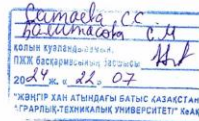 Ситаева С.С
Балшитасова С.М
қолын куәландырамын.
ПЖЖ басқармасының бастығы
2024 ж. «22» 07
"ЖӘҢГІР ХАН АТЫНДАҒЫ БАТЫС ҚАЗАҚСТАН
АГРАРЛЫҚ-ТЕХНИКАЛЫҚ УНИВЕРСИТЕТІ" КеАҚ